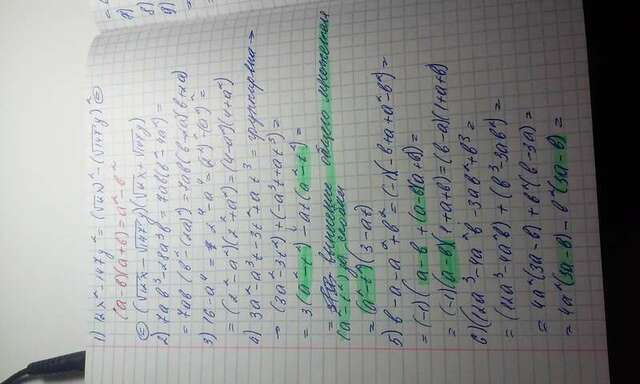 1) 12x² - 147y² = (√12x)² - (√147y)² =
(a-b)(a+b) = a² - b²
= (√12x - √147y)(√12x + √147y)
2) 7ab³ - 28a³b = 7ab(b² - 4a²) =
= 7ab (b² - (2a)²) = 7ab(b-2a)(b+2a)
3) 16 - a⁴ = 2⁴ - a⁴ = (2²)² - (a²)² =
= (2² - a²)(2² + a²) = (4-a²)(4+a²)
4) 3a² - a³t - 3t² + at³ = группировка →
→ (3a² - 3t²) + (-a³t + at³) =
= 3(a² - t²) - at(a² - t²) =
= вынесение общего множителя
(a² - t²) за скобки
= (a² - t²)(3 - at)
5) b - a - a² + b² = (-1)(-b + a + a² - b²) =
= (-1)(a - b + (a-b)(a+b)) =
= (-1)(a-b)(1 + a + b) = (b-a)(1+a+b)
6) (12a³ - 4a²b - 3ab² + b³ =
= (12a³ - 4a²b) + (b³ - 3ab²) =
= 4a²(3a - b) + b²(b - 3a) =
= 4a²(3a - b) - b²(3a - b) =
7)
8)
9)